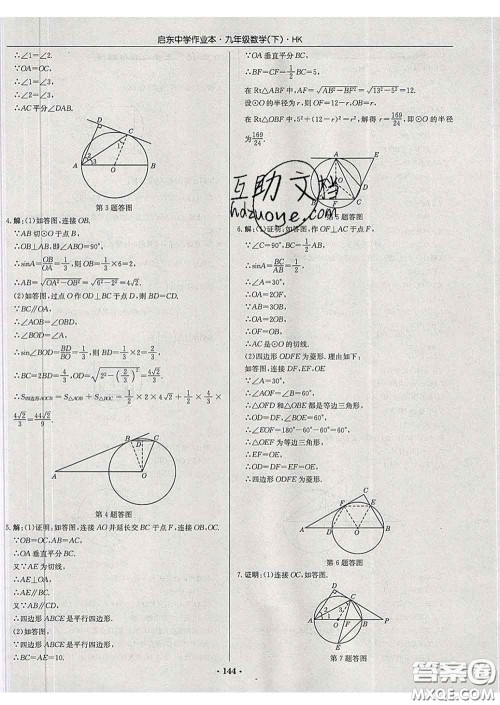 启东中学作业本·九年级数学(下)·HK
∴∠1=∠2.
∵OA=OC,
∴∠1=∠3,
∴∠2=∠3,
∴AC平分∠DAB.
第3题答图
4.解:(1)如答图,连接OB.
∵AB切⊙O于点B,
∴OB⊥AB,即∠ABO=90°,
∴sinA=OB/OA=1/3,∴OB=1/3×6=2,
∴AB=√(OA²−OB²)=√(6²−2²)=4√2.
(2)如答图,过点O作OD⊥BC于点D,则BC=2BD.
∵BC∥OA,
∴∠AOB=∠OBC.
∴sin∠BOD=BD/BO=1/3,则BD=2/3,
∴BC=2BD=4/3,OD=√(2²−(2/3)²)=4√2/3,
=1/2×2×4√2+1/2×4/3×4√2/3=44√2/9.
第4题答图
5.解:(1)证明:如答图,连接AO并延长交BC于点F,连接OB,OC.
∵OB=OC,AB=AC,
∴OA垂直平分BC.
又∵AE为切线,
∴AE⊥OA,
∴AE∥BC.
又∵AB∥CD,
∴四边形ABCE是平行四边形.
(2)∵四边形ABCE是平行四边形,
∴BC=AE=10.
∵OA垂直平分BC,
∴BF=CF=1/2BC=5.
在Rt△ABF中,AF=√(AB²−BF²)=√(13²−5²)=12.
设⊙O的半径为r,则OF=12−r,OB=r.
在Rt△OBF中,5²+(12−r)²=r²,解得r=169/24,即⊙O的半径
为169/24.
互助文档
hazuoye.com
第5题答图
6.解:(1)证明:如答图,作OF⊥AC于点F,
∵∠C=90°,AB=2BC,
∴sinA=BC/AB=1/2,
∴∠A=30°,
∴OA=2OF.
∵OA=2OB,
∴OF=OB,
∴AC是⊙O的切线.
(2)四边形ODFE为菱形.理由如下:
如答图,连接DF,EF,OE
∵∠A=30°,
∴∠AOF=∠B=60°,
∴△OFD和△OBE都是等边三角形,
∴∠EOF=180°−60°−60°=60°,
∴△OEF为等边三角形,
∴OD=DF=EF=OE,
∴四边形ODFE为菱形.
第6题答图
7.证明:(1)连接OC,如答图.
第7题答图
·144·
答案圈
MXQE.COM